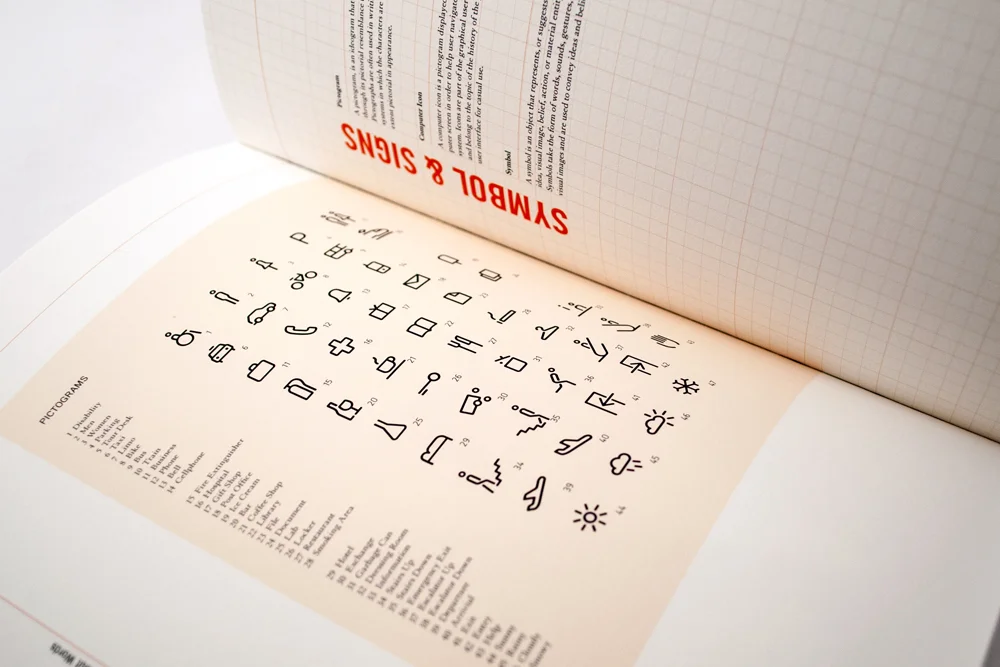 SYMBOL & SIGNS
Pictogram
A pictogram, is an ideogram that
through its pictorial resemblance
Pictographs are often used in
systems in which the characters are
extent pictorial in appearance.
Computer Icon
A computer icon is a pictogram displayed
puter screen in order to help user navigate
system. Icons are part of the graphical user
and belong to the topic of the history of the
user interface for casual use.
Symbol
A symbol is an object that represents, or suggests
idea, visual image, belief, action, or material
Symbols take the form of words, sounds, gestures,
visual images and are used to convey ideas and
PICTOGRAMS
1 Disability
2 Men
3 Women
4 Parking
5 Tour Desk
6 Taxi
7 Limo
8 Bike
9 Bus
10 Train
11 Business
12 Phone
13 Bell
14 Cellphone
15 Fire Extinguisher
16 Hospital
17 Gift Shop
18 Post Office
19 Ice Cream
20 Bar
21 Coffee Shop
22 Library
23 File
24 Document
25 Lab
26 Locker
27 Restaurant
28 Smoking Area
29 Hotel
30 Exchange
31 Garbage Can
32 Dressing Room
33 Information
34 Stairs Up
35 Stairs Down
36 Emergency Exit
37 Escalator Up
38 Escalator Down
39 Departure
40 Arrival
41 Exit
42 Entry
43 Help
44 Sunny
45 Rainy
Cloudy
Snowy
Words